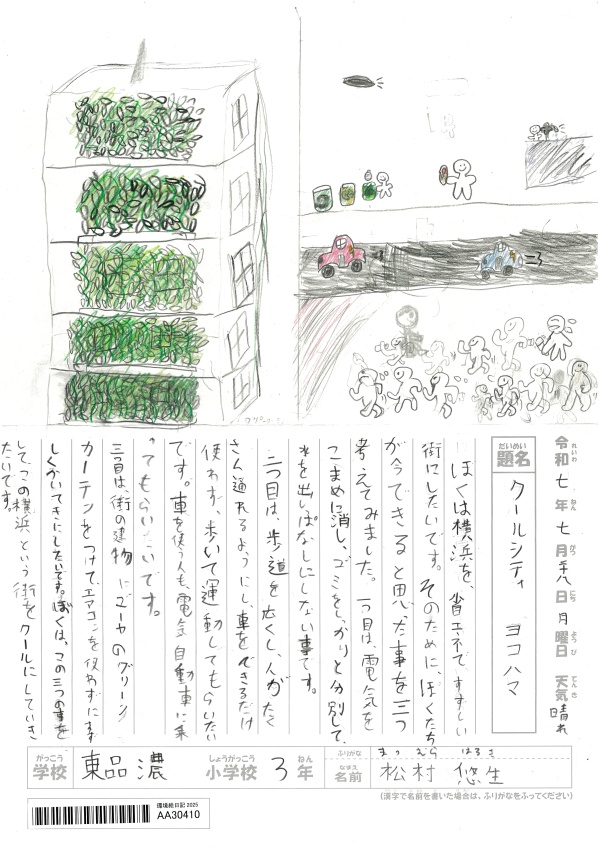 グリーンカーテン
令和七年七月廿八日月曜日 天気晴れ
れいわ ねん がつ にち ようび てんき
だいめい
題名
クールシティ ヨコハマ
ぼくは横浜を、省エネで、すずしい
街にしたいです。そのために、ぼくたち
が今できると思った事を三つ
考えてみました。一つ目は、電気を
こまめに消し、ゴミをしっかりと分別して、
水を出しぱなしにしない事です。
二つ目は、歩道を広くし、人がたく
さん通れるようにし、車をできるだけ
使わず、歩いて運動してもらいたい
です。車を使う人も電気自動車に乗
ってもらいたいです。
三つ目は、街の建物にゴーヤのグリーン
カーテンをつけて、エアコンを使わずにすず
しくかいてきにしたいです。ぼくは、この三つの事を
して、この横浜という街をクールにしていき
たいです。
がっこう
学校
東品濃
しょうがっこう
小学校
3
ねん
年
ふりがな
まつむら はるき
なまえ
名前
松村 悠生
(漢字で名前を書いた場合は、ふりがなをふってください)
環境絵日記 2025
AA30410